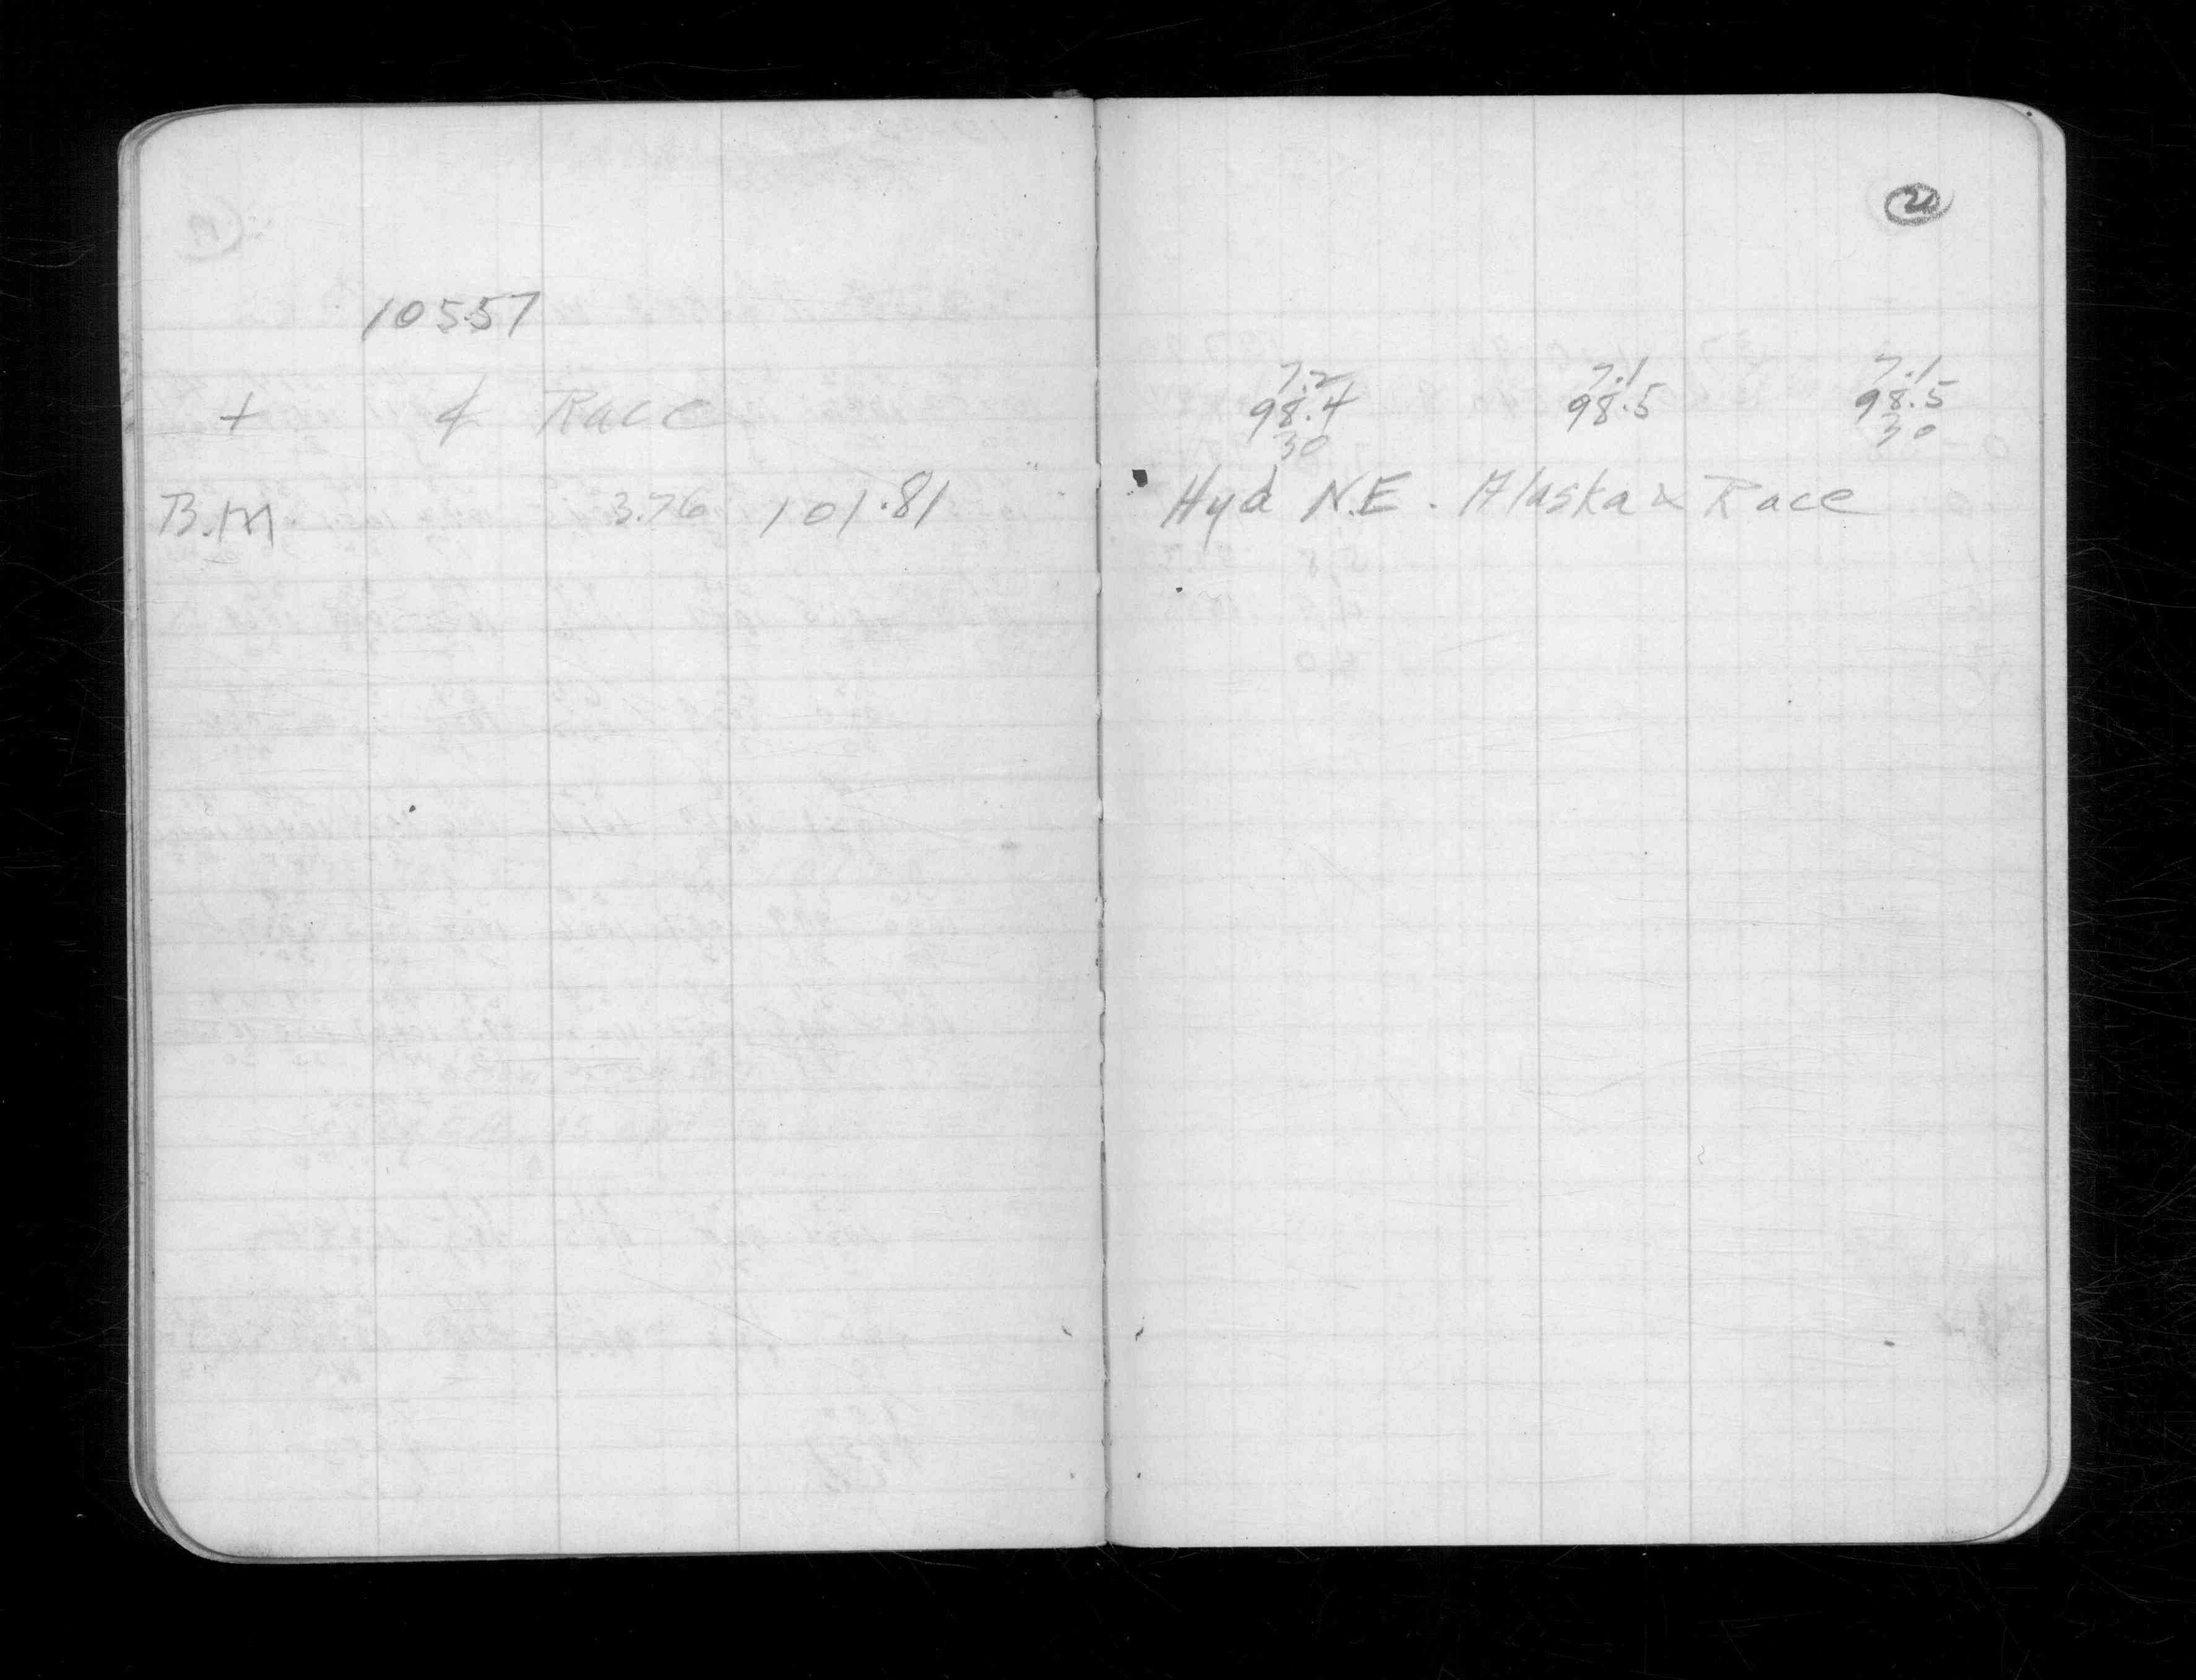 105.57
+ ¢ Race
B.M. 3.76 101.81
20
7.2 7.1 7.1
98.4 98.5 98.5
30 30
Hyd N.E. Alaska & Race